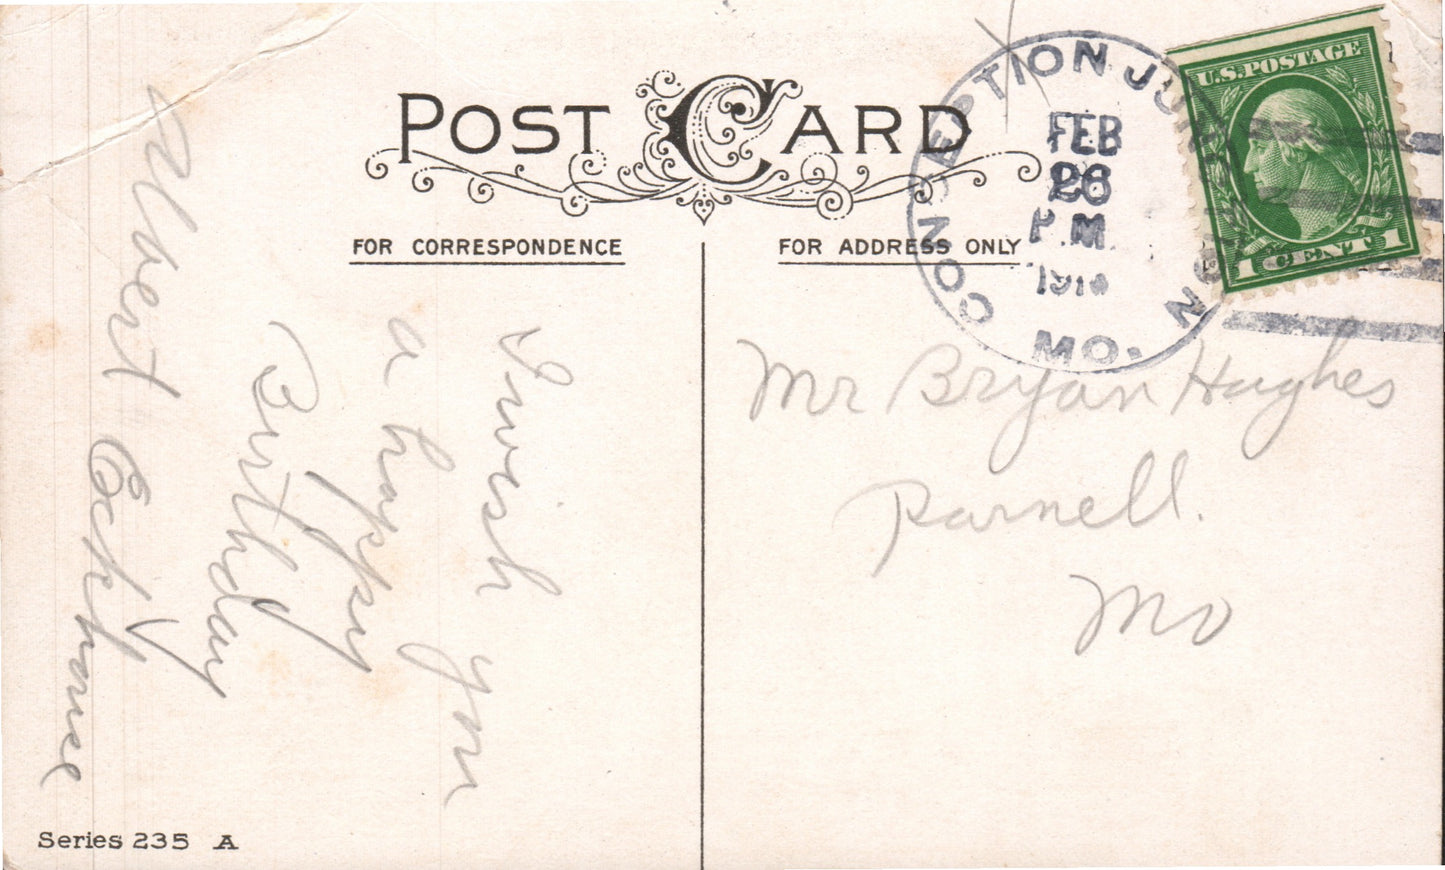 POST CARD
FOR CORRESPONDENCE
FOR ADDRESS ONLY
CONSEPTION JUNCTION
MO.
FEB
26
P.M.
U.S. POSTAGE
1 CENT 1
Mr Bryan Hughes
Parnell.
Mo
I wish you
a happy
Birthday
Albert
Series 235 A